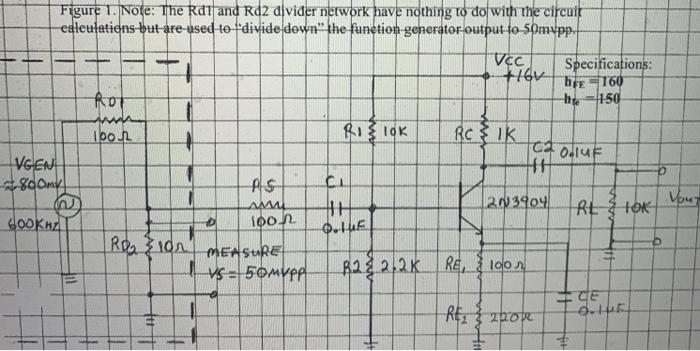 Figure 1. Note: The Rd1 and Rd2 divider network have nothing to do with the circuit
calculations but are used to "divide down" the function generator output to 50mvpp.
VCC
+16V
Specifications:
hFE = 160
hfe = 150
RD1
100Ω
R1 10K
RC 1K
C2 0.1uF
VGEN
≈800mV
600KHz
RS
100Ω
C1
0.1uF
2N3904
RL 10K
Vout
RD2 10Ω
MEASURE
VS = 50MVPP
R2 2.2K
RE1 100Ω
RE2 220Ω
CE
0.1uF